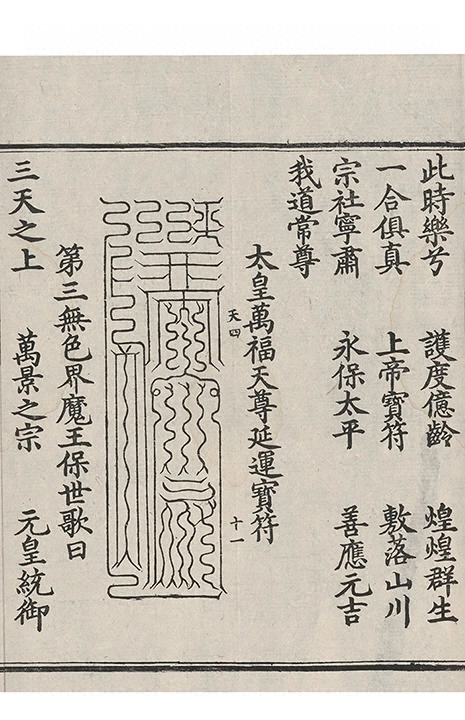 此時樂兮　護度億齡　煌煌群生
一合俱真　上帝寶符　敷落山川
宗社寧肅　永保太平　善應元吉
我道常尊
太皇萬福天尊延運寶符
天四　十一
第三無色界魔王保世歌曰
三天之上　萬景之宗　元皇統御